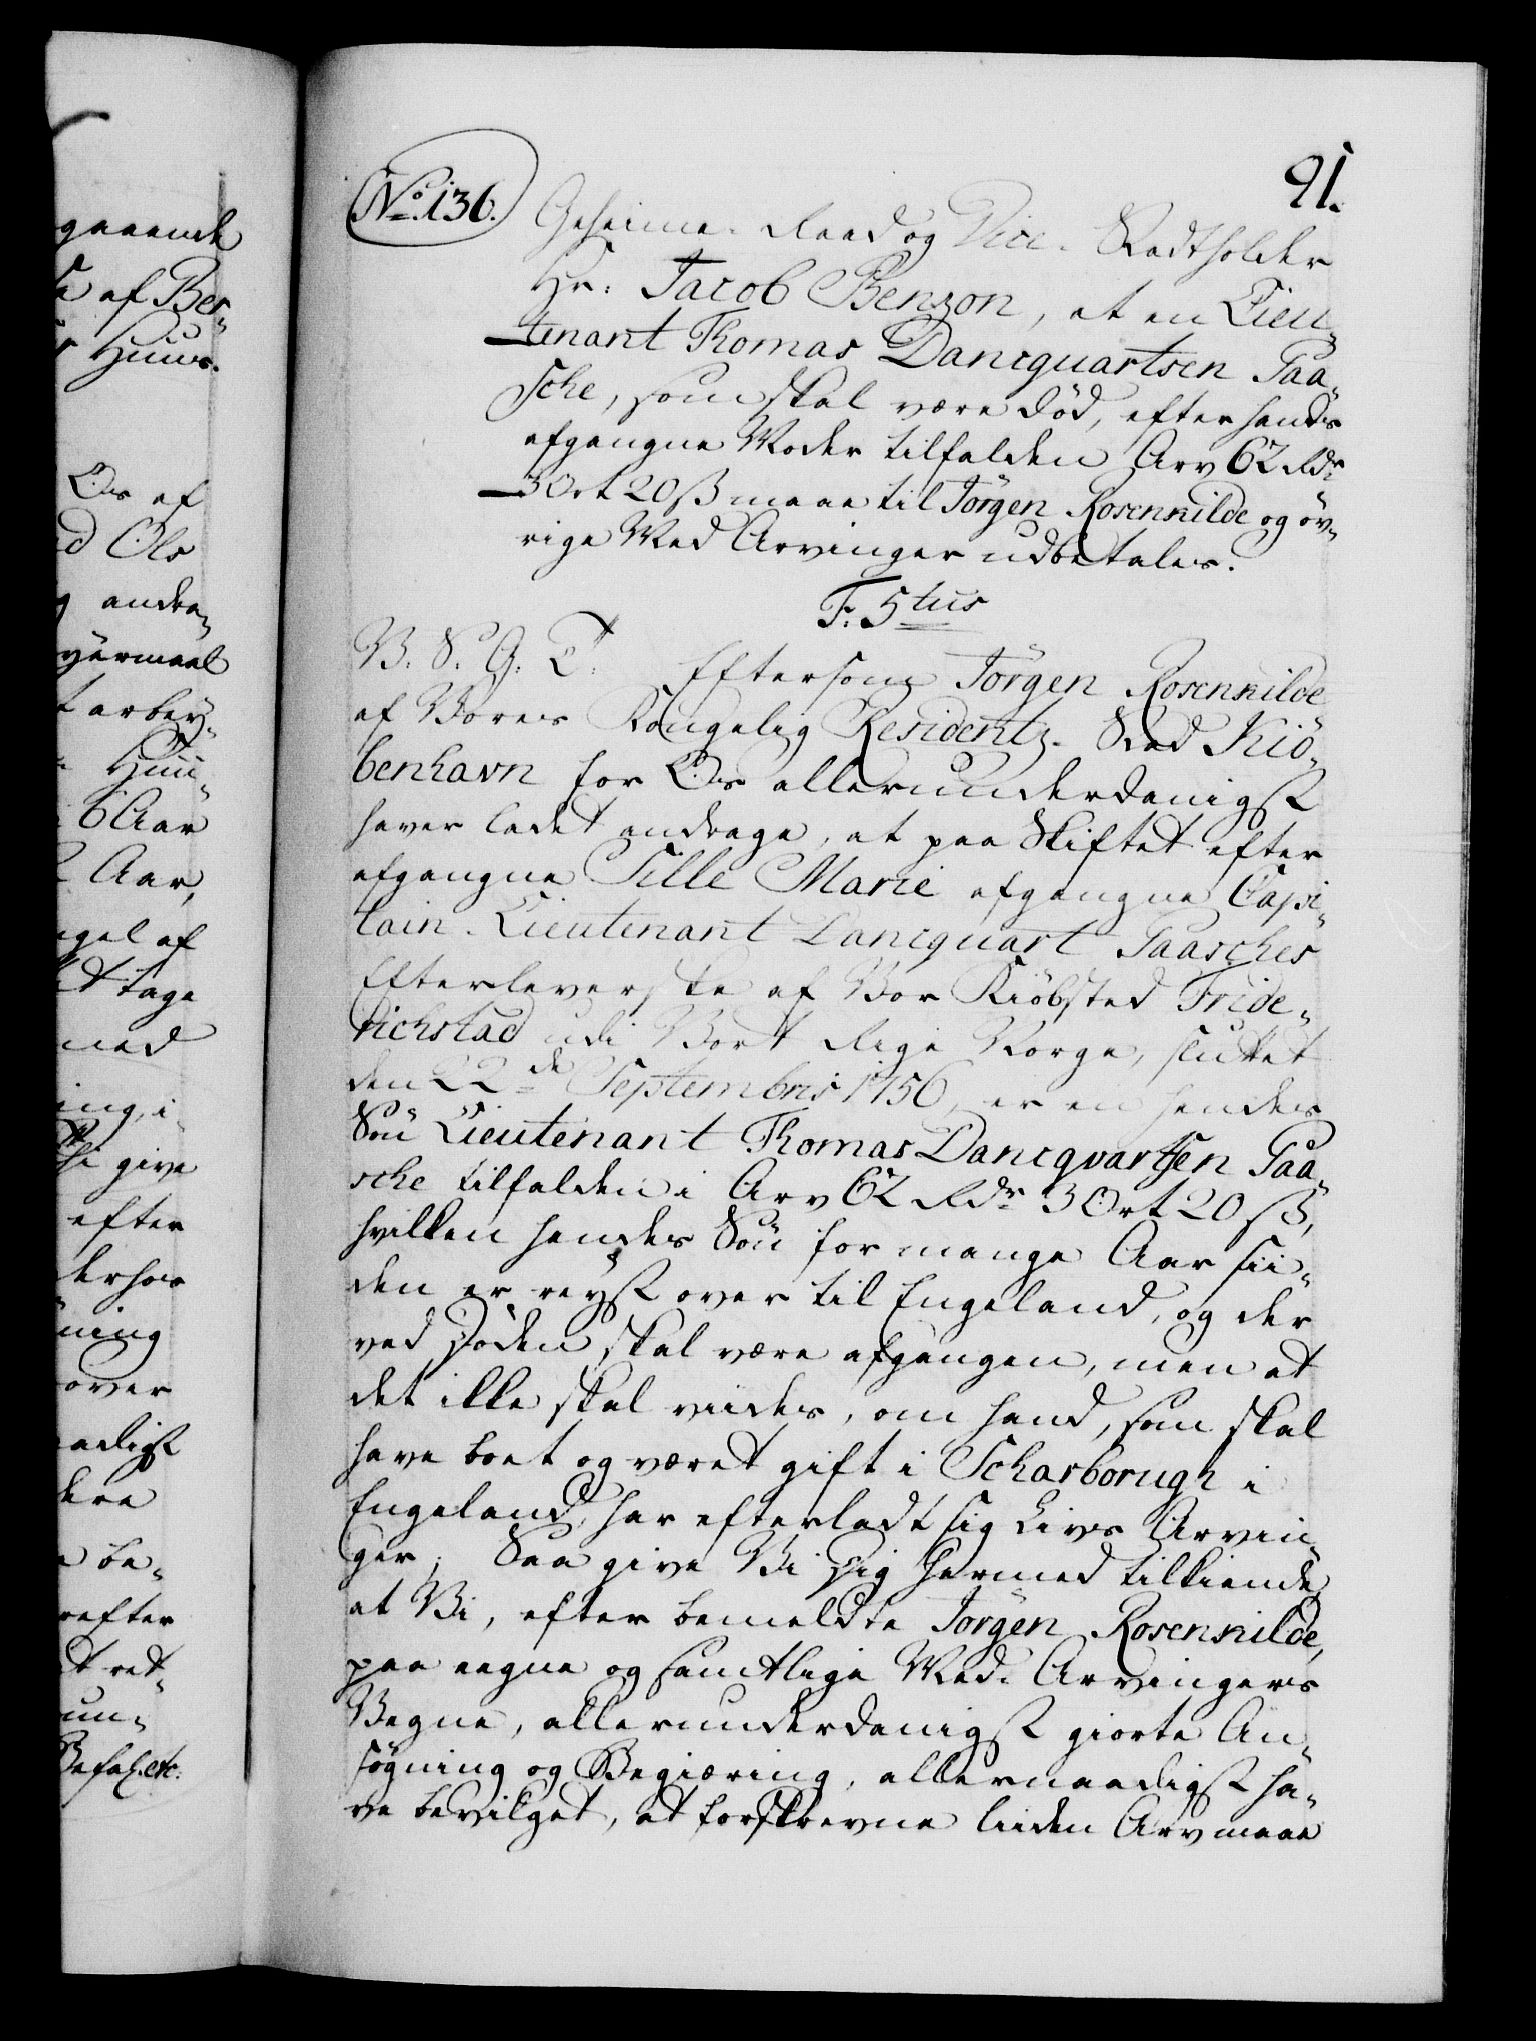 gaaende
e af Ber„
r Huus.
Os af
ed Ols
g andra„
giærmaal
t arbey„
Huu„
6 Aar
Aar,
ngel af
et tage
med
ing, i
Thi give
efter
derhos
ning
over
naadigst
dere
n be„
refter
dt ret„
un„
Befal. etc.
91.
No. 136.
Geheime-Raad og Vice-Stadtholder
Hr. Jacob Benzon, at en Lieu„
tenant Thomas Dancquartsen Paa„
sche, som skal være død, efter hands
afgangne Moder tilfalden Arv 62 Rdr
3 Ort 20 ß maae til Jörgen Rosenkilde og öv„
rige Med Arvinger udbetales.
F. 5tus
V. S. G. T. Eftersom Jörgen Rosenkilde
af Vores Kongelig Residentz-Stad Kiö„
benhavn for Os allerunderdanigst
haver ladet andrage, at paa Skiftet efter
afgangne Sille Marie afgangne Capi„
tain-Lieutenant Dancquart Paasches
Efterleverske af Vor Kiöbsted Fride„
richstad udi Vort Rige Norge, sluttet
den 22de Septembris 1756, er en hendes
Sön Lieutenant Thomas Dancqvartsen Paa„
sche tilfalden i Arv 62 Rdr 3 Ort 20 ß,
hvilken hendes Sön for mange Aar sii„
den er reyst over til Engeland, og der
ved Döden skal være afgangen, men at
det ikke skal viides, om hand, som skal
have boet og været gift i Scharborugh i
Engeland, har efterladt sig Livs Arvin„
ger; Saa give Vi Dig hermed tilkiende,
at Vi, efter bemeldte Jörgen Rosenkilde,
paa eegne og samtlige Med-Arvingers
Vegne, allerunderdanigst giorte An„
søgning og Begiæring, allernaadigst ha„
ve bevilget, at forskrevne liiden Arv maae